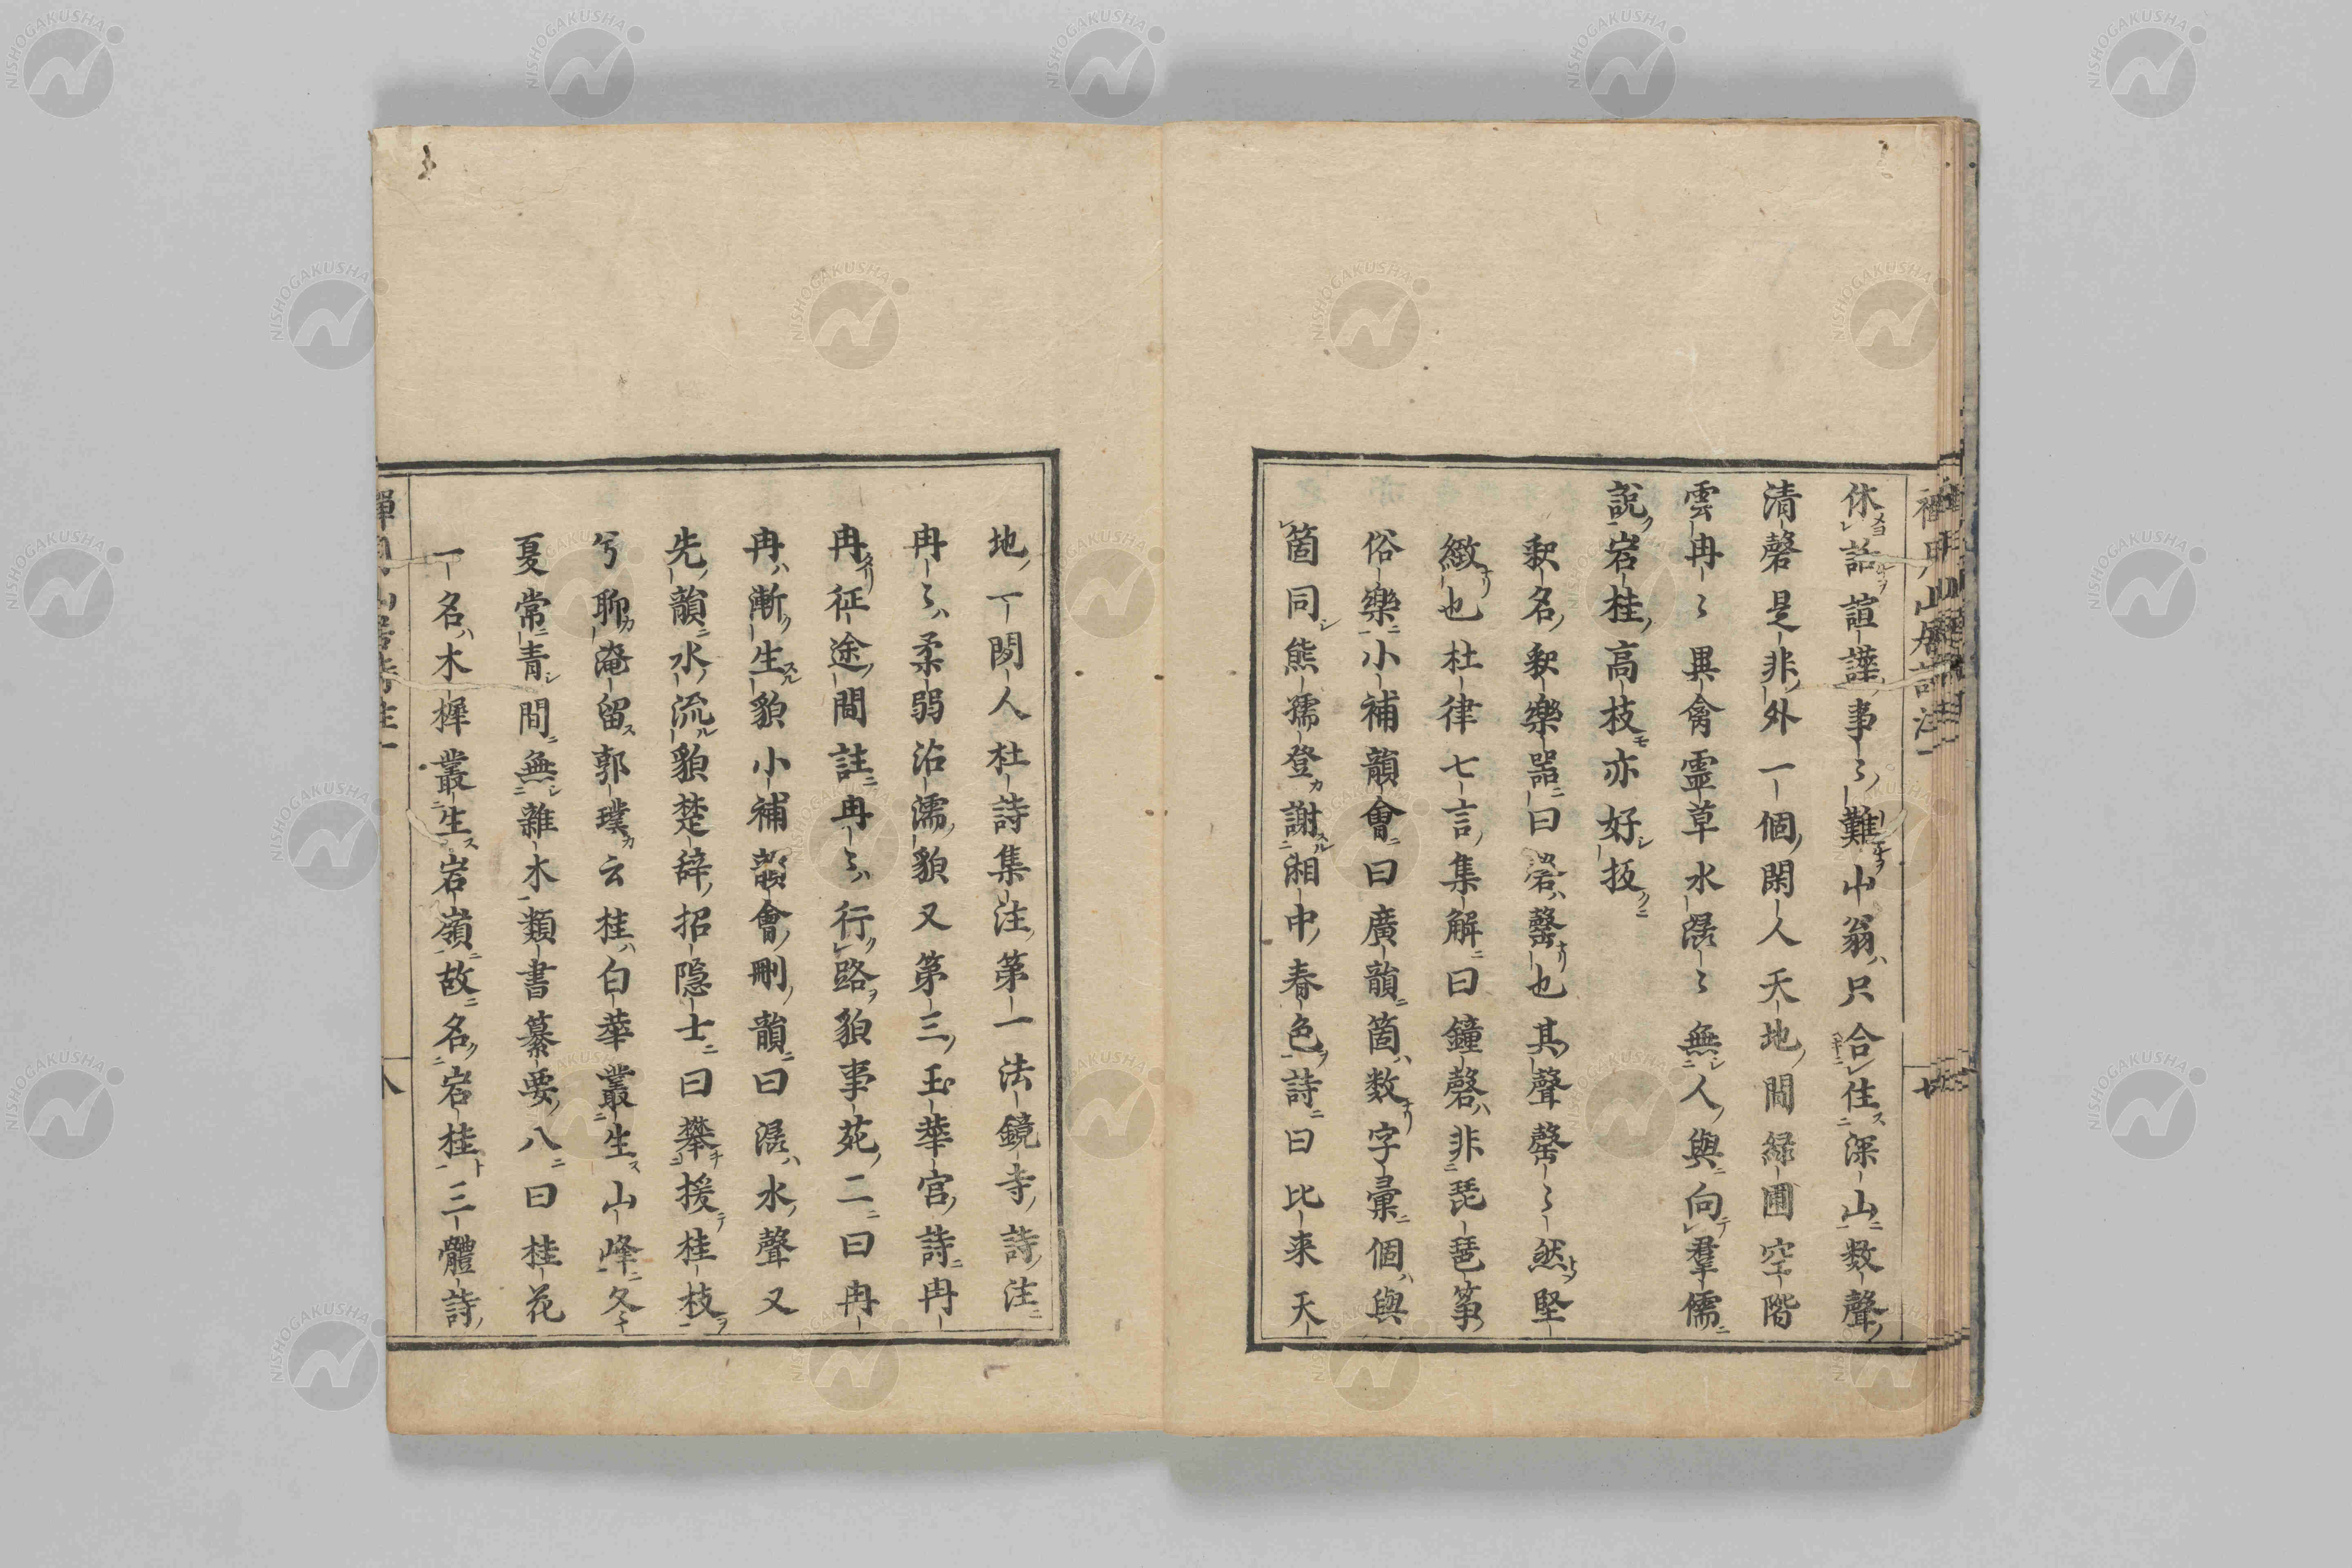 休話諠譁事〻難山翁只合住深山数聲
清磬是非外一個閑人天地間緑圃空階
雲冉〻異禽靈草水潺〻無人與向羣儒
説岩桂高枝亦好扳
釈名釈樂噐曰磬罄也其聲罄〻然堅
緻也杜律七言集解曰鐘磬非琵琶筝
俗樂小補韻會曰廣韻箇数字彙個與
箇同熊孺登謝湘中春色詩曰比来天
地丁閑人杜詩集注第一法鏡寺詩注
冉〻柔弱沾濡貌又第三玉華宮詩冉
冉征途間註冉〻行路貌事苑二曰冉
冉漸生貌小補韻會刪韻曰潺水聲又
先韻水流貌楚辞招隠士曰攀援桂枝
兮聊淹留郭璞云桂白華叢生山峰冬
夏常青間無雜木類書纂要八曰桂花
一名木樨叢生岩嶺故名岩桂三體詩
八
NISHOGAKUSHA